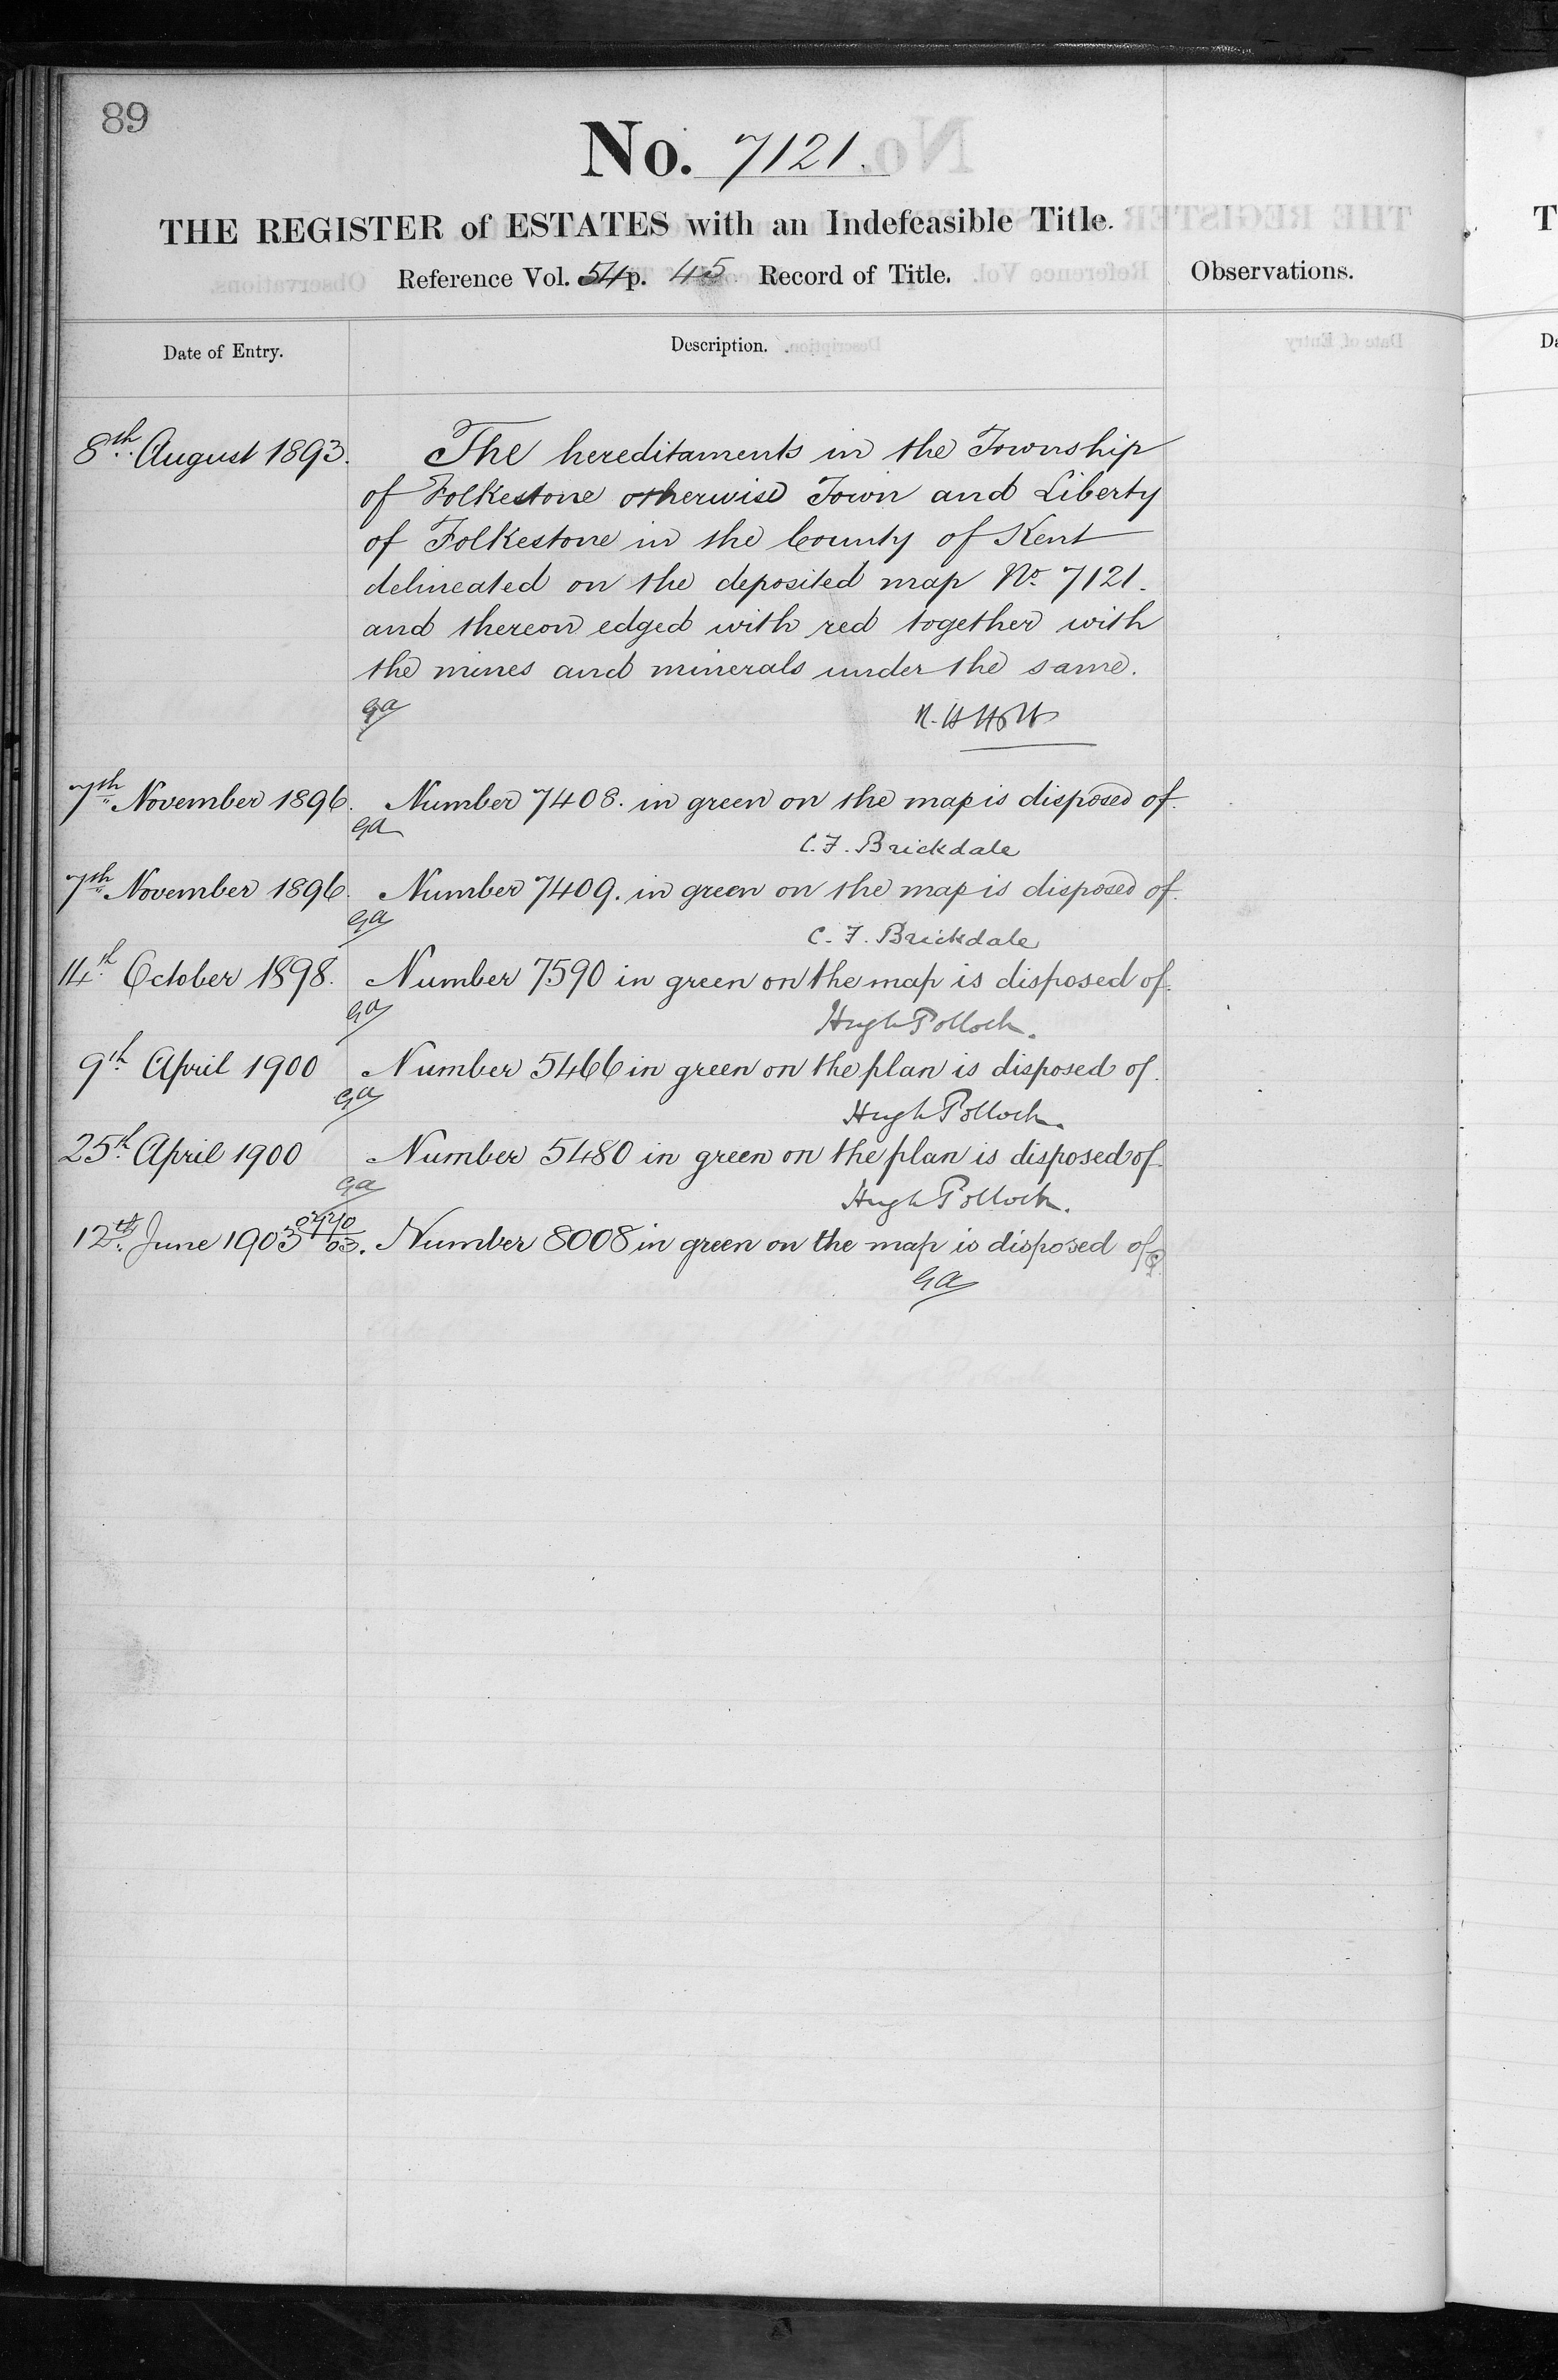 89
No. 7121.
THE REGISTER of ESTATES with an Indefeasible Title.
Reference Vol. 54 p. 45 Record of Title.
Observations.
Date of Entry.
Description.
8th August 1893. The hereditaments in the Township
of Folkestone otherwise Town and Liberty
of Folkestone in the County of Kent
delineated on the deposited map No. 7121.
and thereon edged with red together with
the mines and minerals under the same.
ga
7th November 1896. Number 7408. in green on the map is disposed of.
ga C. F. Brickdale
7th November 1896. Number 7409. in green on the map is disposed of.
ga C. F. Brickdale
14th October 1898. Number 7590 in green on the map is disposed of.
ga Hugh Pollock.
9th April 1900 Number 5466 in green on the plan is disposed of.
ga Hugh Pollock.
25th April 1900 Number 5480 in green on the plan is disposed of.
ga Hugh Pollock.
12th June 1903 03. Number 8008 in green on the map is disposed of
ga
T
Da